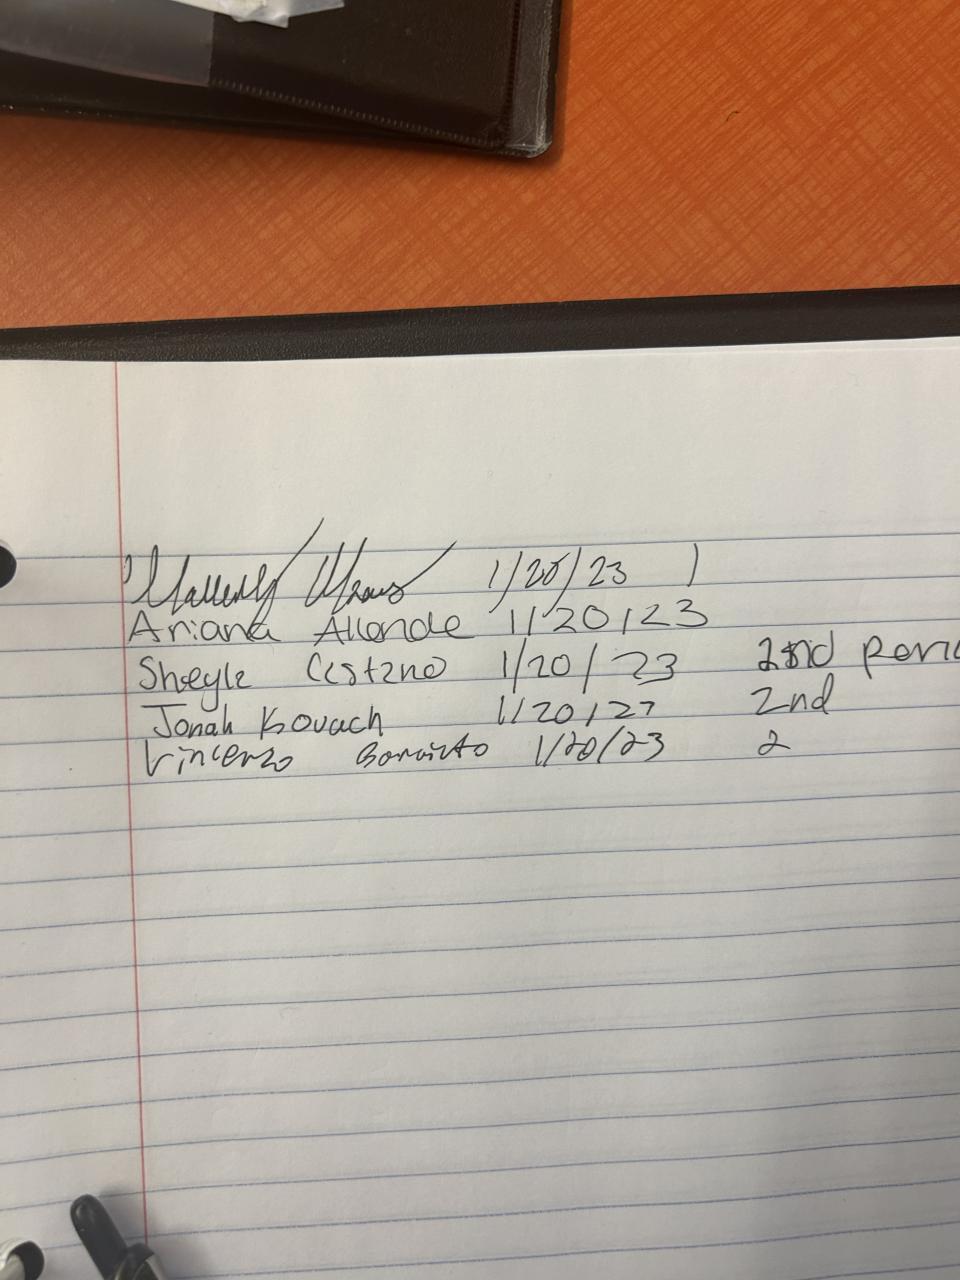 1/20/23 1
Ariana Allende 1/20/23
Sheyla Castano 1/20/23 2nd Perio
Jonah Kovach 1/20/23 2nd
Vincenzo 1/20/23 2